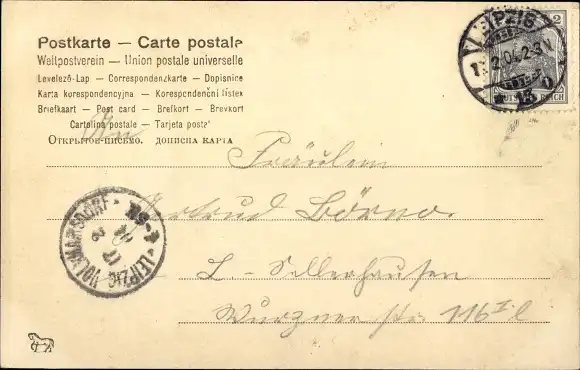 Postkarte — Carte postale
Weltpostverein — Union postale universelle
Levelező-Lap — Correspondenzkarte — Dopisnice
Karta korespondencyjna — Korespondenční lístek
Briefkaart — Post card — Brefkort — Brevkort
Cartolina postale — Tarjeta postal
Открытое письмо. дописна карта
LEIPZIG
2.04.2-3N
13
2
DEUTSCHES REICH
An
Fräulein
Gertrud Börno.
L - Sellerhausen
Wurzner str. 116 II l
LEIPZIG-VOLKMARSDORF